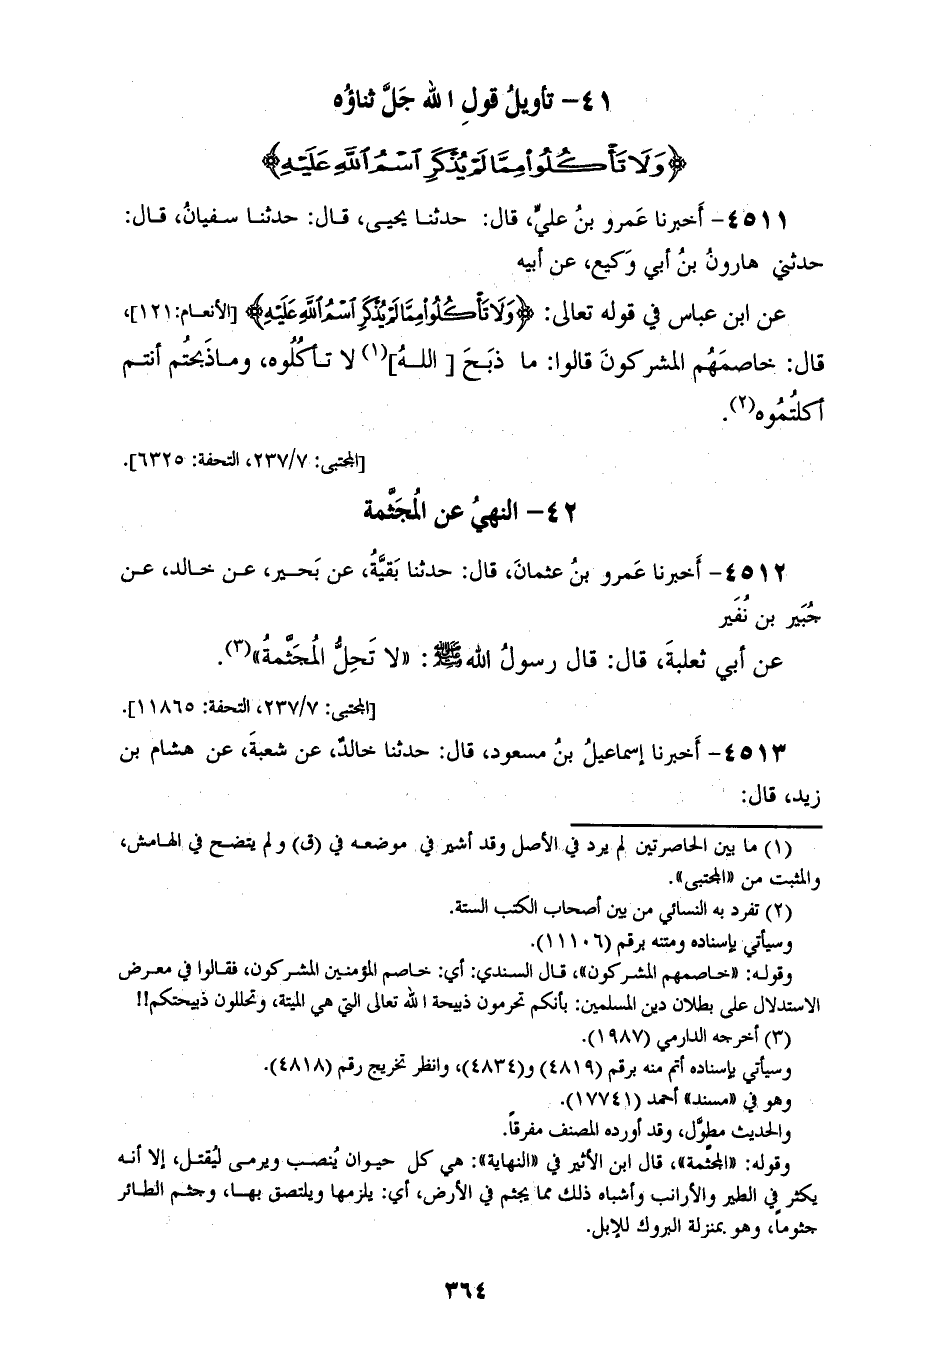 ٤١- تأويلُ قولِ الله جَلَّ ثناؤُه
﴿وَلَا تَأْكُلُوا مِمَّا لَمْ يُذْكَرِ اسْمُ اللَّهِ عَلَيْهِ﴾
٤٥١١- أَخبرنا عَمرو بنُ عليٍّ، قال: حدثنا يحيى، قال: حدثنا سفيانُ، قال:
حدثني هارونُ بنُ أبي وَكيع، عن أبيه
عن ابن عباس في قوله تعالى: ﴿وَلَا تَأْكُلُوا مِمَّا لَمْ يُذْكَرِ اسْمُ اللَّهِ عَلَيْهِ﴾ [الأنعام: ١٢١]،
قال: خاصمَهُم المشركونَ قالوا: ما ذبَحَ [ اللهُ](١) لا تأكُلُوه، وماذَبَحتُم أنتم
أكلتُمُوه(٢).
[المجتبى: ٢٣٧/٧، التحفة: ٦٣٢٥].
٤٢- النهيُ عن المُجَثَّمة
٤٥١٢- أَخبرنا عَمرو بنُ عثمانَ، قال: حدثنا بَقيَّةُ، عن بَحير، عن خالد، عن
جُبَير بن نُفَير
عن أبي ثعلبةَ، قال: قال رسولُ الله ﷺ: «لا تَحلُّ المُجَثَّمةُ»(٣).
[المجتبى: ٢٣٧/٧، التحفة: ١١٨٦٥].
٤٥١٣- أَخبرنا إسماعيلُ بنُ مسعود، قال: حدثنا خالدٌ، عن شعبةَ، عن هشام بن
زيد، قال:
(١) ما بين الحاصرتين لم يرد في الأصل وقد أشير في موضعه في (ق) ولم يتضح في الهامش،
والمثبت من «المجتبى».
(٢) تفرد به النسائي من بين أصحاب الكتب الستة.
وسيأتي بإسناده ومتنه برقم (١١١٠٦).
وقوله: «خاصمهم المشركون»، قال السندي: أي: خاصم المؤمنين المشركون، فقالوا في معرض
الاستدلال على بطلان دين المسلمين: بأنكم تحرمون ذبيحة الله تعالى التي هي الميتة، وتحللون ذبيحتكم!!
(٣) أخرجه الدارمي (١٩٨٧).
وسيأتي بإسناده أتم منه برقم (٤٨١٩) و(٤٨٣٤)، وانظر تخريج رقم (٤٨١٨).
وهو في «مسند» أحمد (١٧٧٤١).
والحديث مطوَّل، وقد أورده المصنف مفرقاً.
وقوله: «المجثّمة»، قال ابن الأثير في «النهاية»: هي كل حيوان يُنصب ويرمى ليُقتل، إلا أنه
يكثر في الطير والأرانب وأشباه ذلك مما يجثم في الأرض، أي: يلزمها ويلتصق بها، وجثم الطائر
جثوماً، وهو بمنزلة البروك للإبل.
٣٦٤